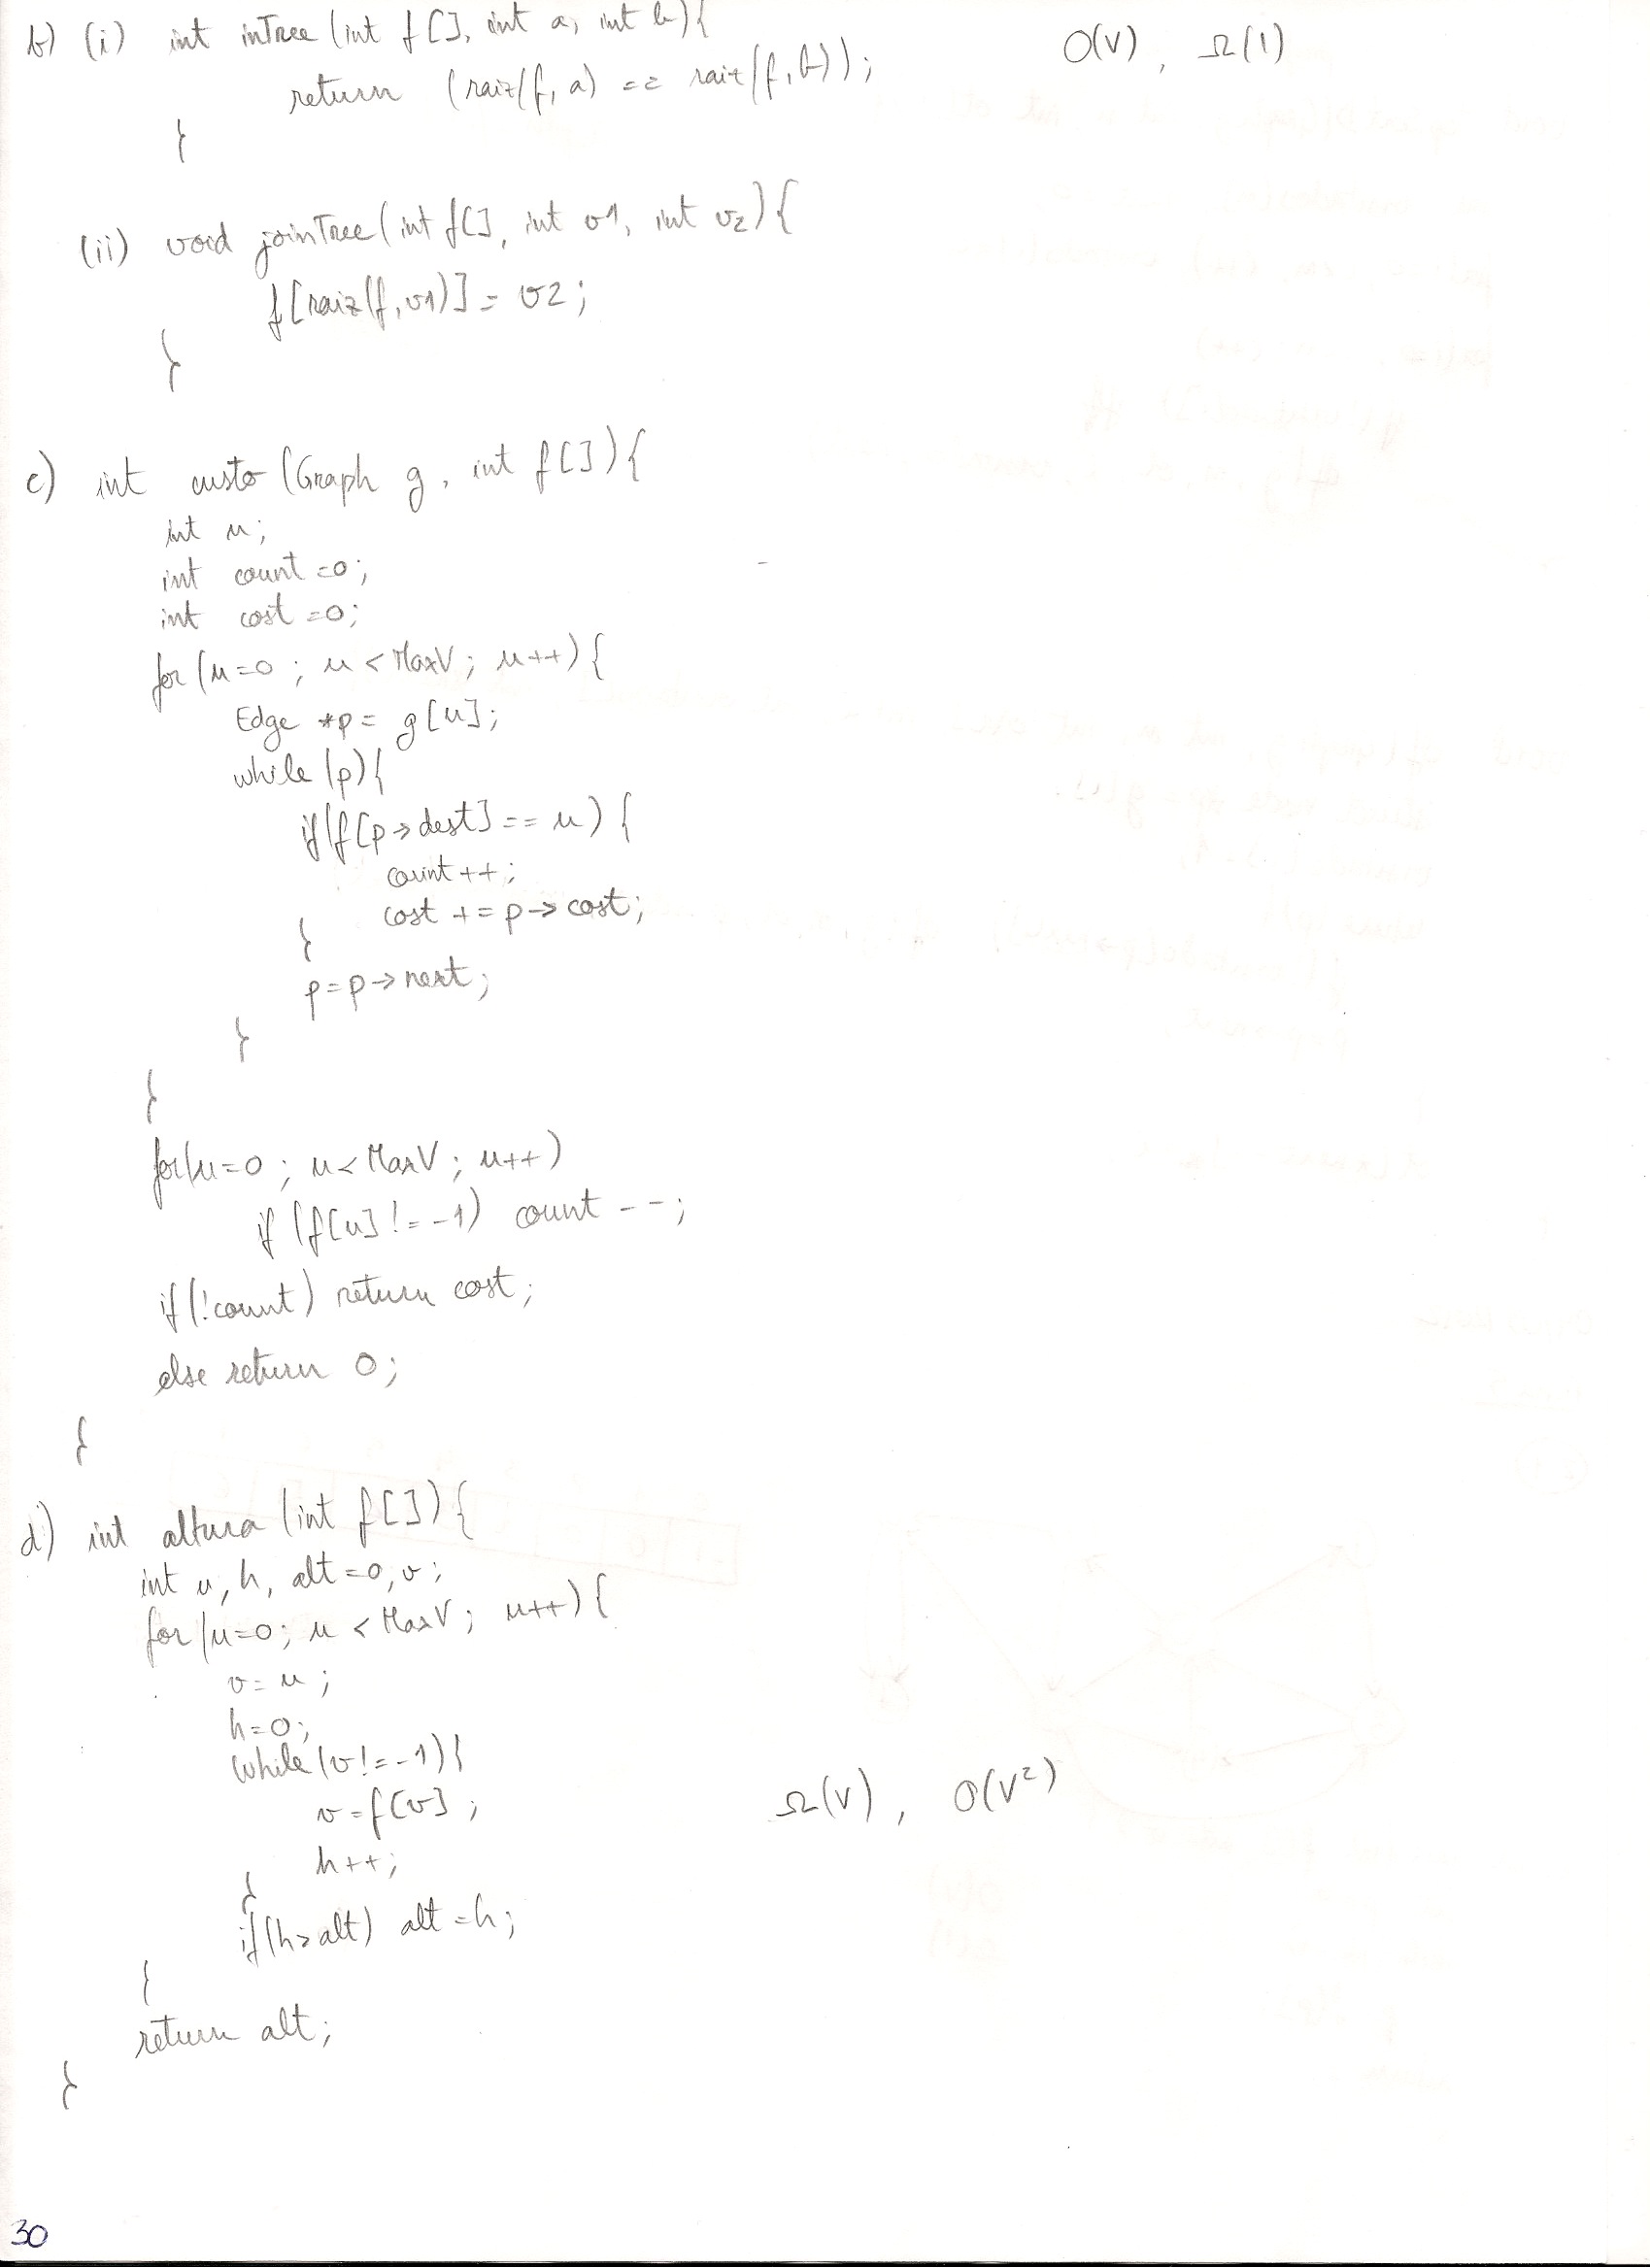 b) (i) int inTree (int f[], int a, int b){ O(V), Ω(1)
return (raiz(f, a) == raiz(f, b));
}
(ii) void joinTree (int f[], int v1, int v2){
f[raiz(f,v1)] = v2;
}
c) int custo (Graph g, int f[]){
int u;
int count =0;
int cost =0;
for (u=0; u < MaxV; u++){
Edge *p = g[u];
while (p){
if(f[p->dest] == u) {
count++;
cost += p->cost;
}
p=p->next;
}
}
for(u=0; u< MaxV; u++)
if (f[u] != -1) count --;
if (!count) return cost;
else return 0;
}
d) int altura (int f[]){
int u, h, alt=0, v;
for (u=0; u < MaxV; u++){
v= u;
h=0;
while (v != -1){
v=f[v]; Ω(V), O(V²)
h++;
}
if(h> alt) alt =h;
}
return alt;
}
30